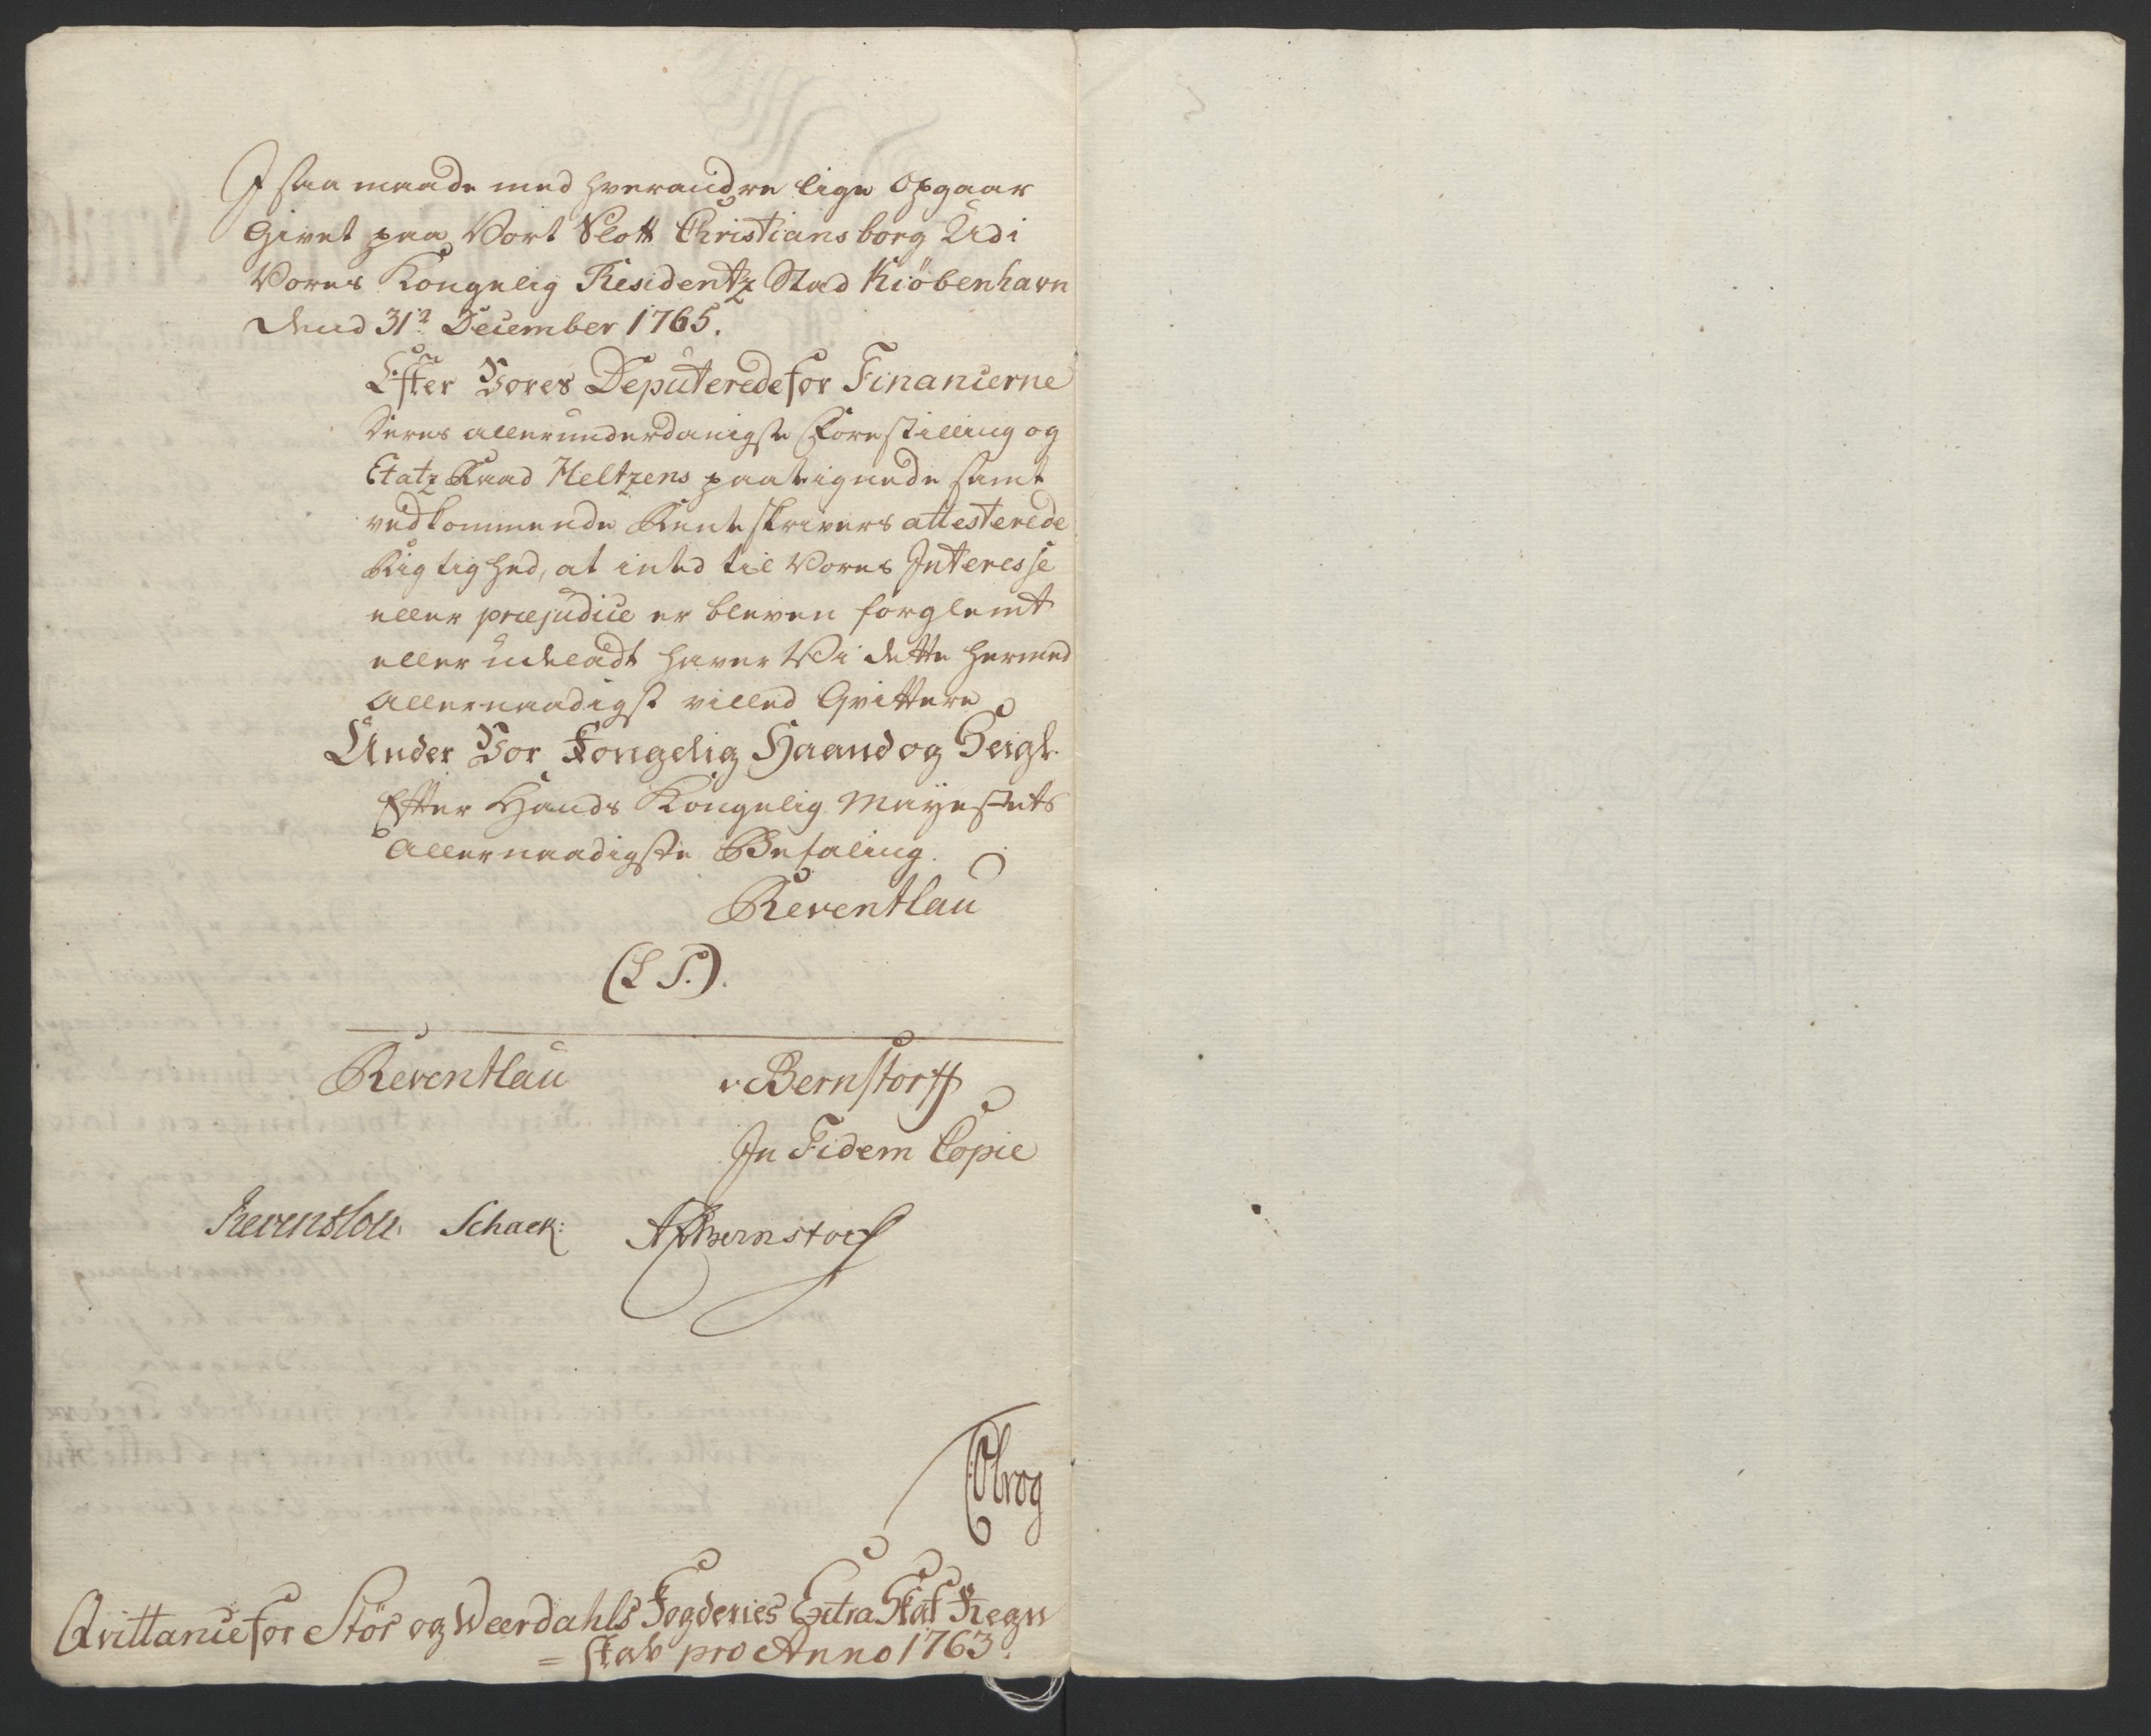 I saa maade med hverandre lige opgaar
Givet paa Vort Slott Christiansborg Udi
Vores Kongelig Residentz Stad Kiöbenhavn
Dend 31te December 1765.
Efter Vores Deputerede for Financierne
deres allerunderdanigste Forestilling og
Etatz Raad Heltzens paateignede samt
vedkommende Renteskrivers attesterede
Rigtighed, at inted til Vores Interesse
eller præjudice er bleven forglemt
eller udeladt haver Vi dette hermed
Allernaadigst villed Qvittere
Under Vor Kongelig Haand og Seigl.
Efter Hands Kongelig Mayestets
Allernaadigste Befaling.
Reventlau
(L S.).
Reventlau v Bernstorff
In Fidem Copie
Reventlou. Schack: Bernstorf
Qvittance for Stör og Weerdahls Fogderies Extra Skat Regn
= skab pro Anno 1763.